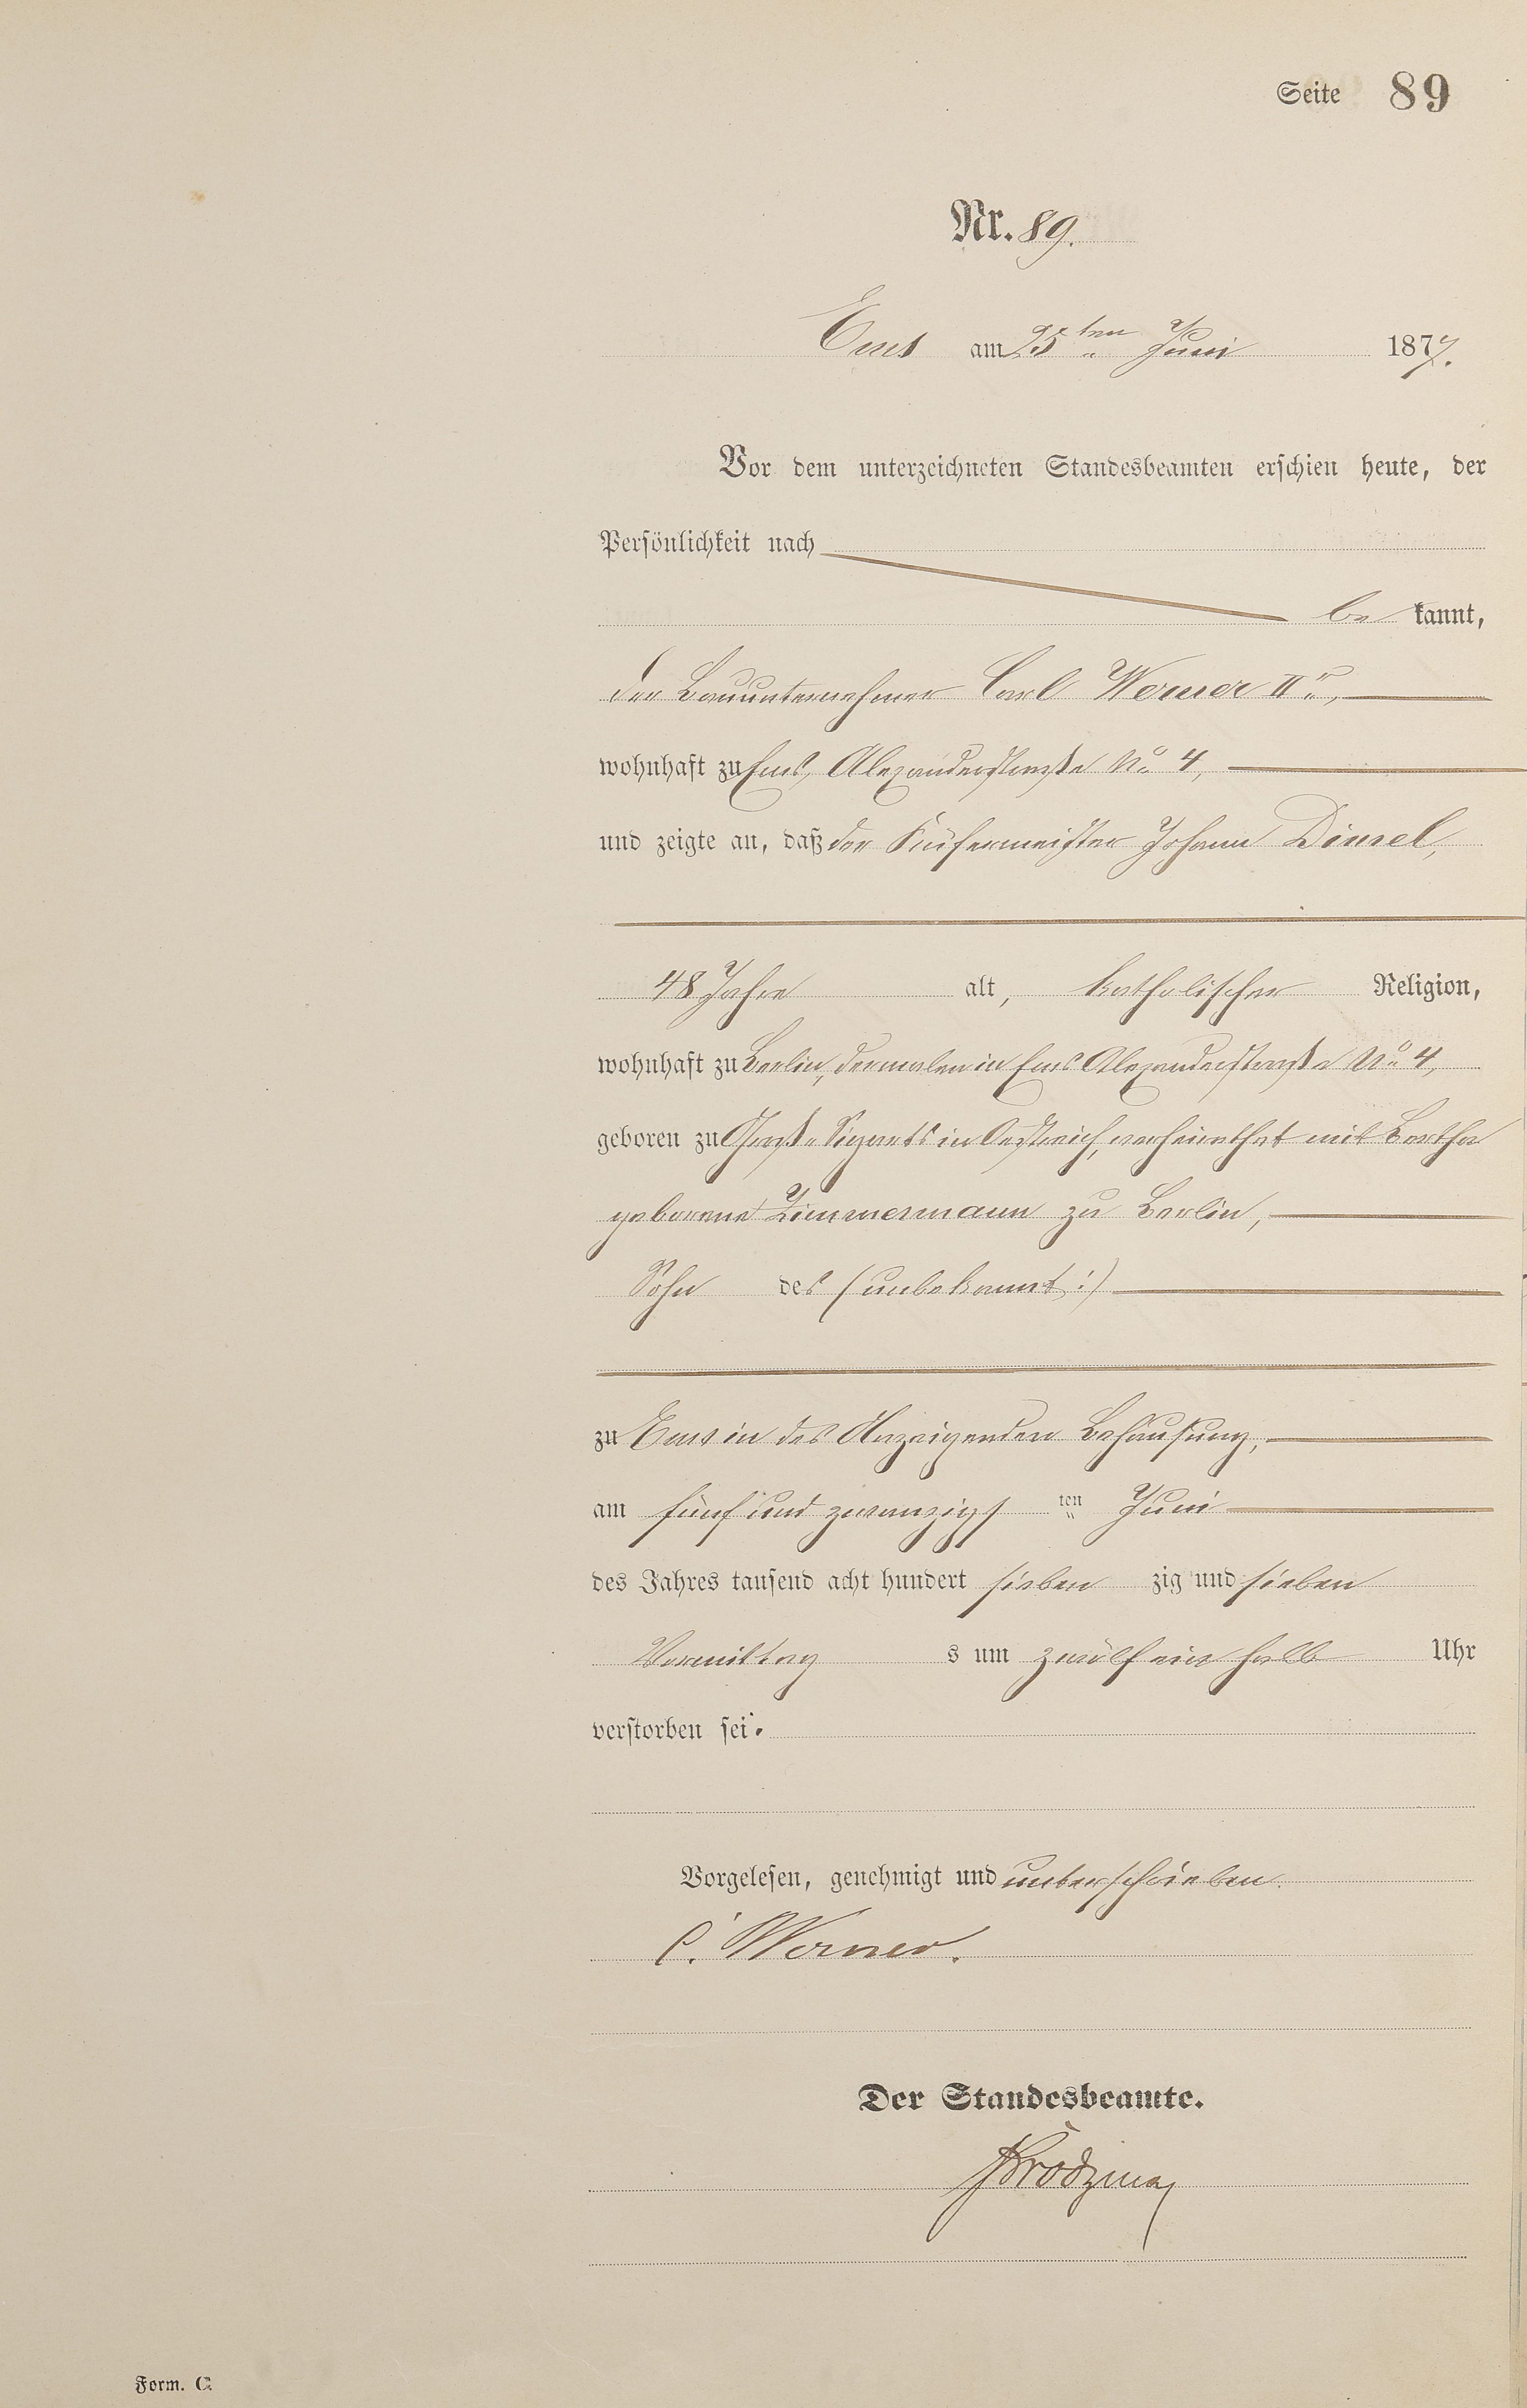 Seite 89
Nr. 89.
Ems am 25ten Juni 1877.
Vor dem unterzeichneten Standesbeamten erschien heute, der
Persönlichkeit nach
be kannt,
der Bauunternehmer Carl Werner IIr,
wohnhaft zu Ems, Alexanderstraße No 4,
und zeigte an, daß der Küfermeister Johann
48 Jahre alt, katholischer Religion,
wohnhaft zu Berlin, dermalen in Ems Alexanderstraße No 4,
geboren zu Groß-Sigarts in Oestreich, verheirathet mit Bertha
geborene Zimmermann zu Berlin,
Sohn des (unbekannt:)
zu Ems in des Anzeigenden Behausung,
am fünf und zwanzigs ten Juni
des Jahres tausend acht hundert sieben zig und sieben
Vormittag s um zwölf ein halb Uhr
verstorben sei.
Vorgelesen, genehmigt und unterschrieben.
C. Werner.
Der Standesbeamte.
Form. C